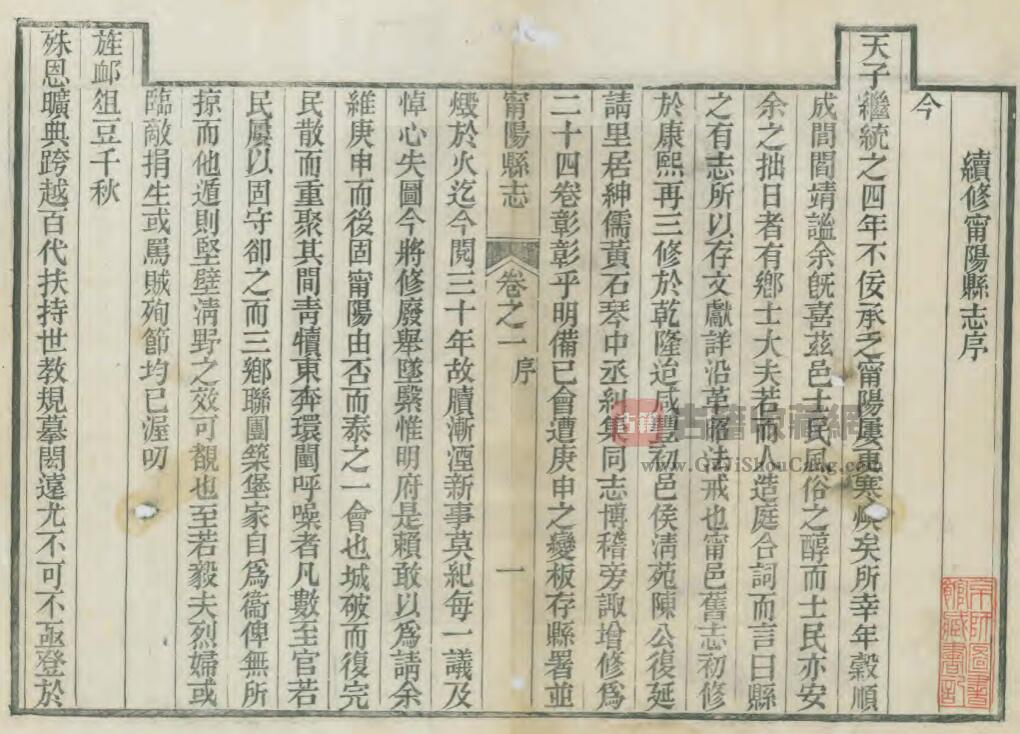 續修甯陽縣志序
今
天子繼統之四年不佞承乏甯陽屢更寒燠矣所幸年穀順
成閭閻靖謐余旣喜茲邑士民風俗之醇而士民亦安
余之拙日者有鄉士大夫若而人造庭合詞而言曰縣
之有志所以存文獻詳沿革昭法戒也甯邑舊志初修
於康熙再三修於乾隆迨咸豐初邑侯淸苑陳公復延
請里居紳儒黃石琴中丞糾集同志博稽旁諏增修爲
二十四卷彰彰乎明備已會遭庚申之變板存縣署並
甯陽縣志 卷之一 序 一
燬於火迄今閱三十年故牘漸湮新事莫紀每一議及
悼心失圖今將修廢舉墜繄惟明府是賴敢以爲請余
維庚申而後固甯陽由否而泰之一會也城破而復完
民散而重聚其間靑犢東奔環闉呼噪者凡數至官若
民屢以固守卻之而三鄉聯團築堡家自爲衞俾無所
掠而他遁則堅壁淸野之效可覩也至若毅夫烈婦或
臨敵捐生或罵賊殉節均已渥叨
旌卹俎豆千秋
殊恩曠典跨越百代扶持世教規摹閎遠尤不可不亟登於
古籍收藏網
www.GuJiShouCang.com
古籍
京師圖書
館藏書記